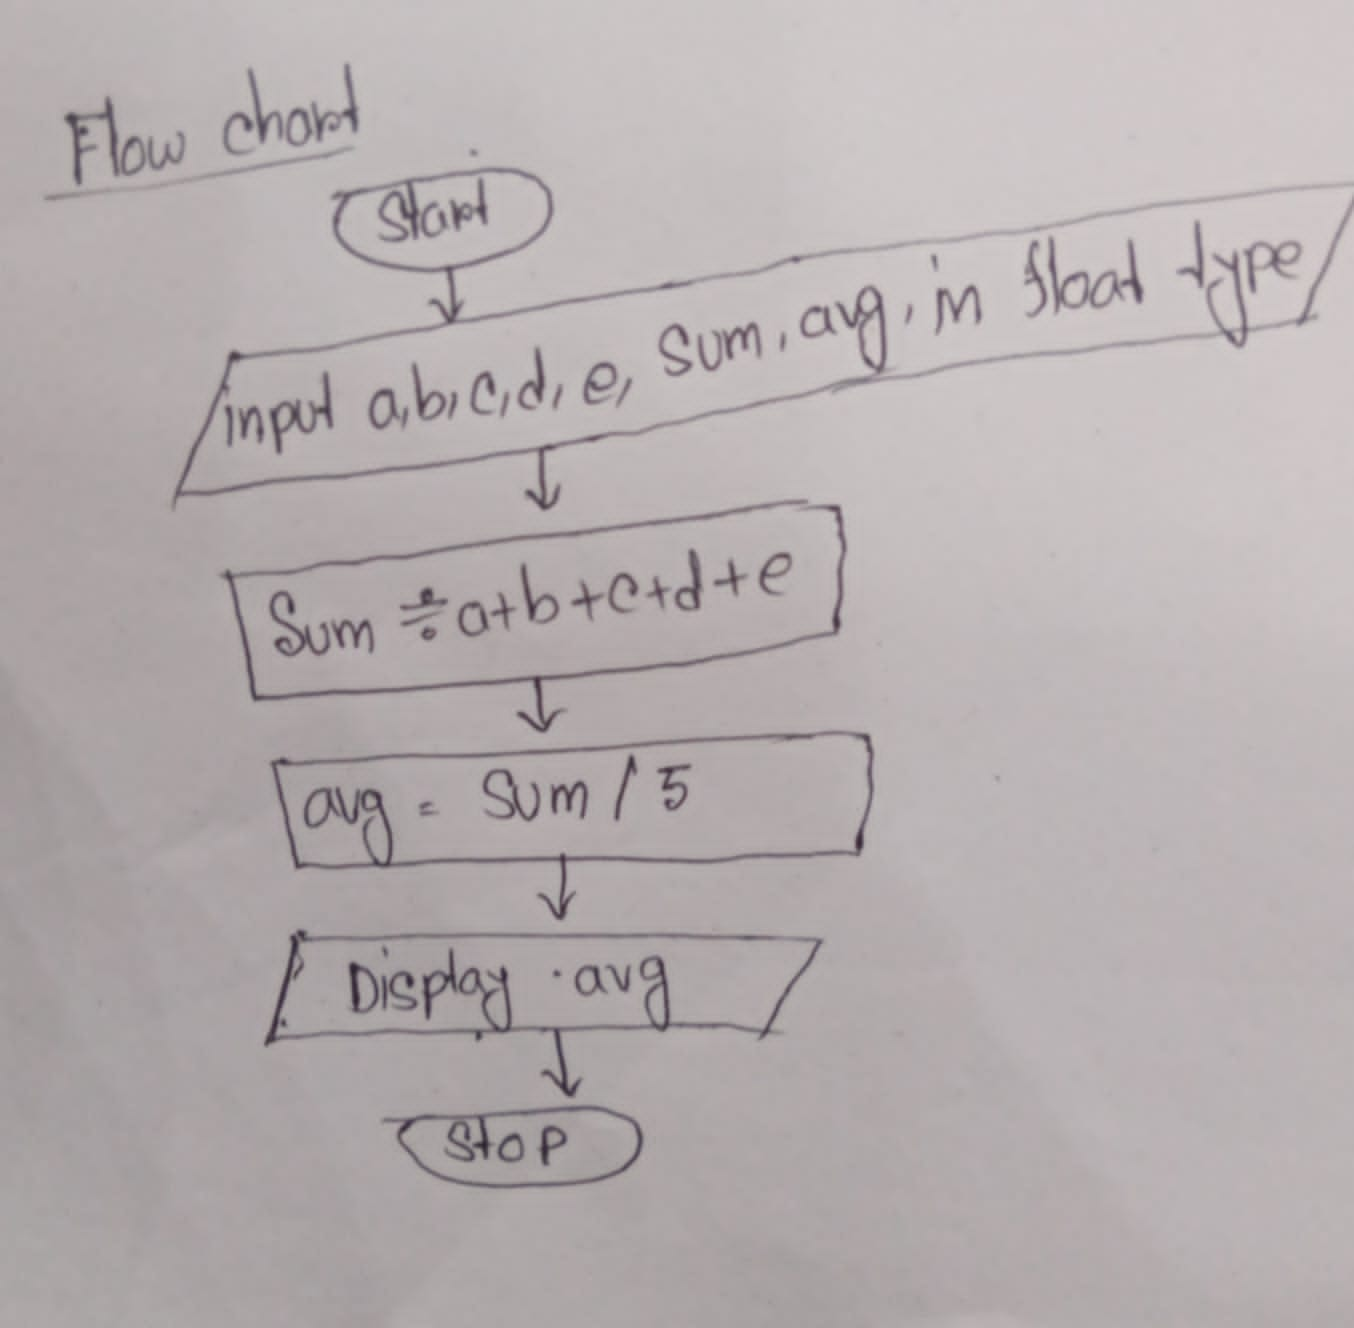 Flow chart
Start
input a, b, c, d, e, sum, avg, in float type
Sum ÷ a+b+c+d+e
avg = Sum / 5
Display avg
Stop